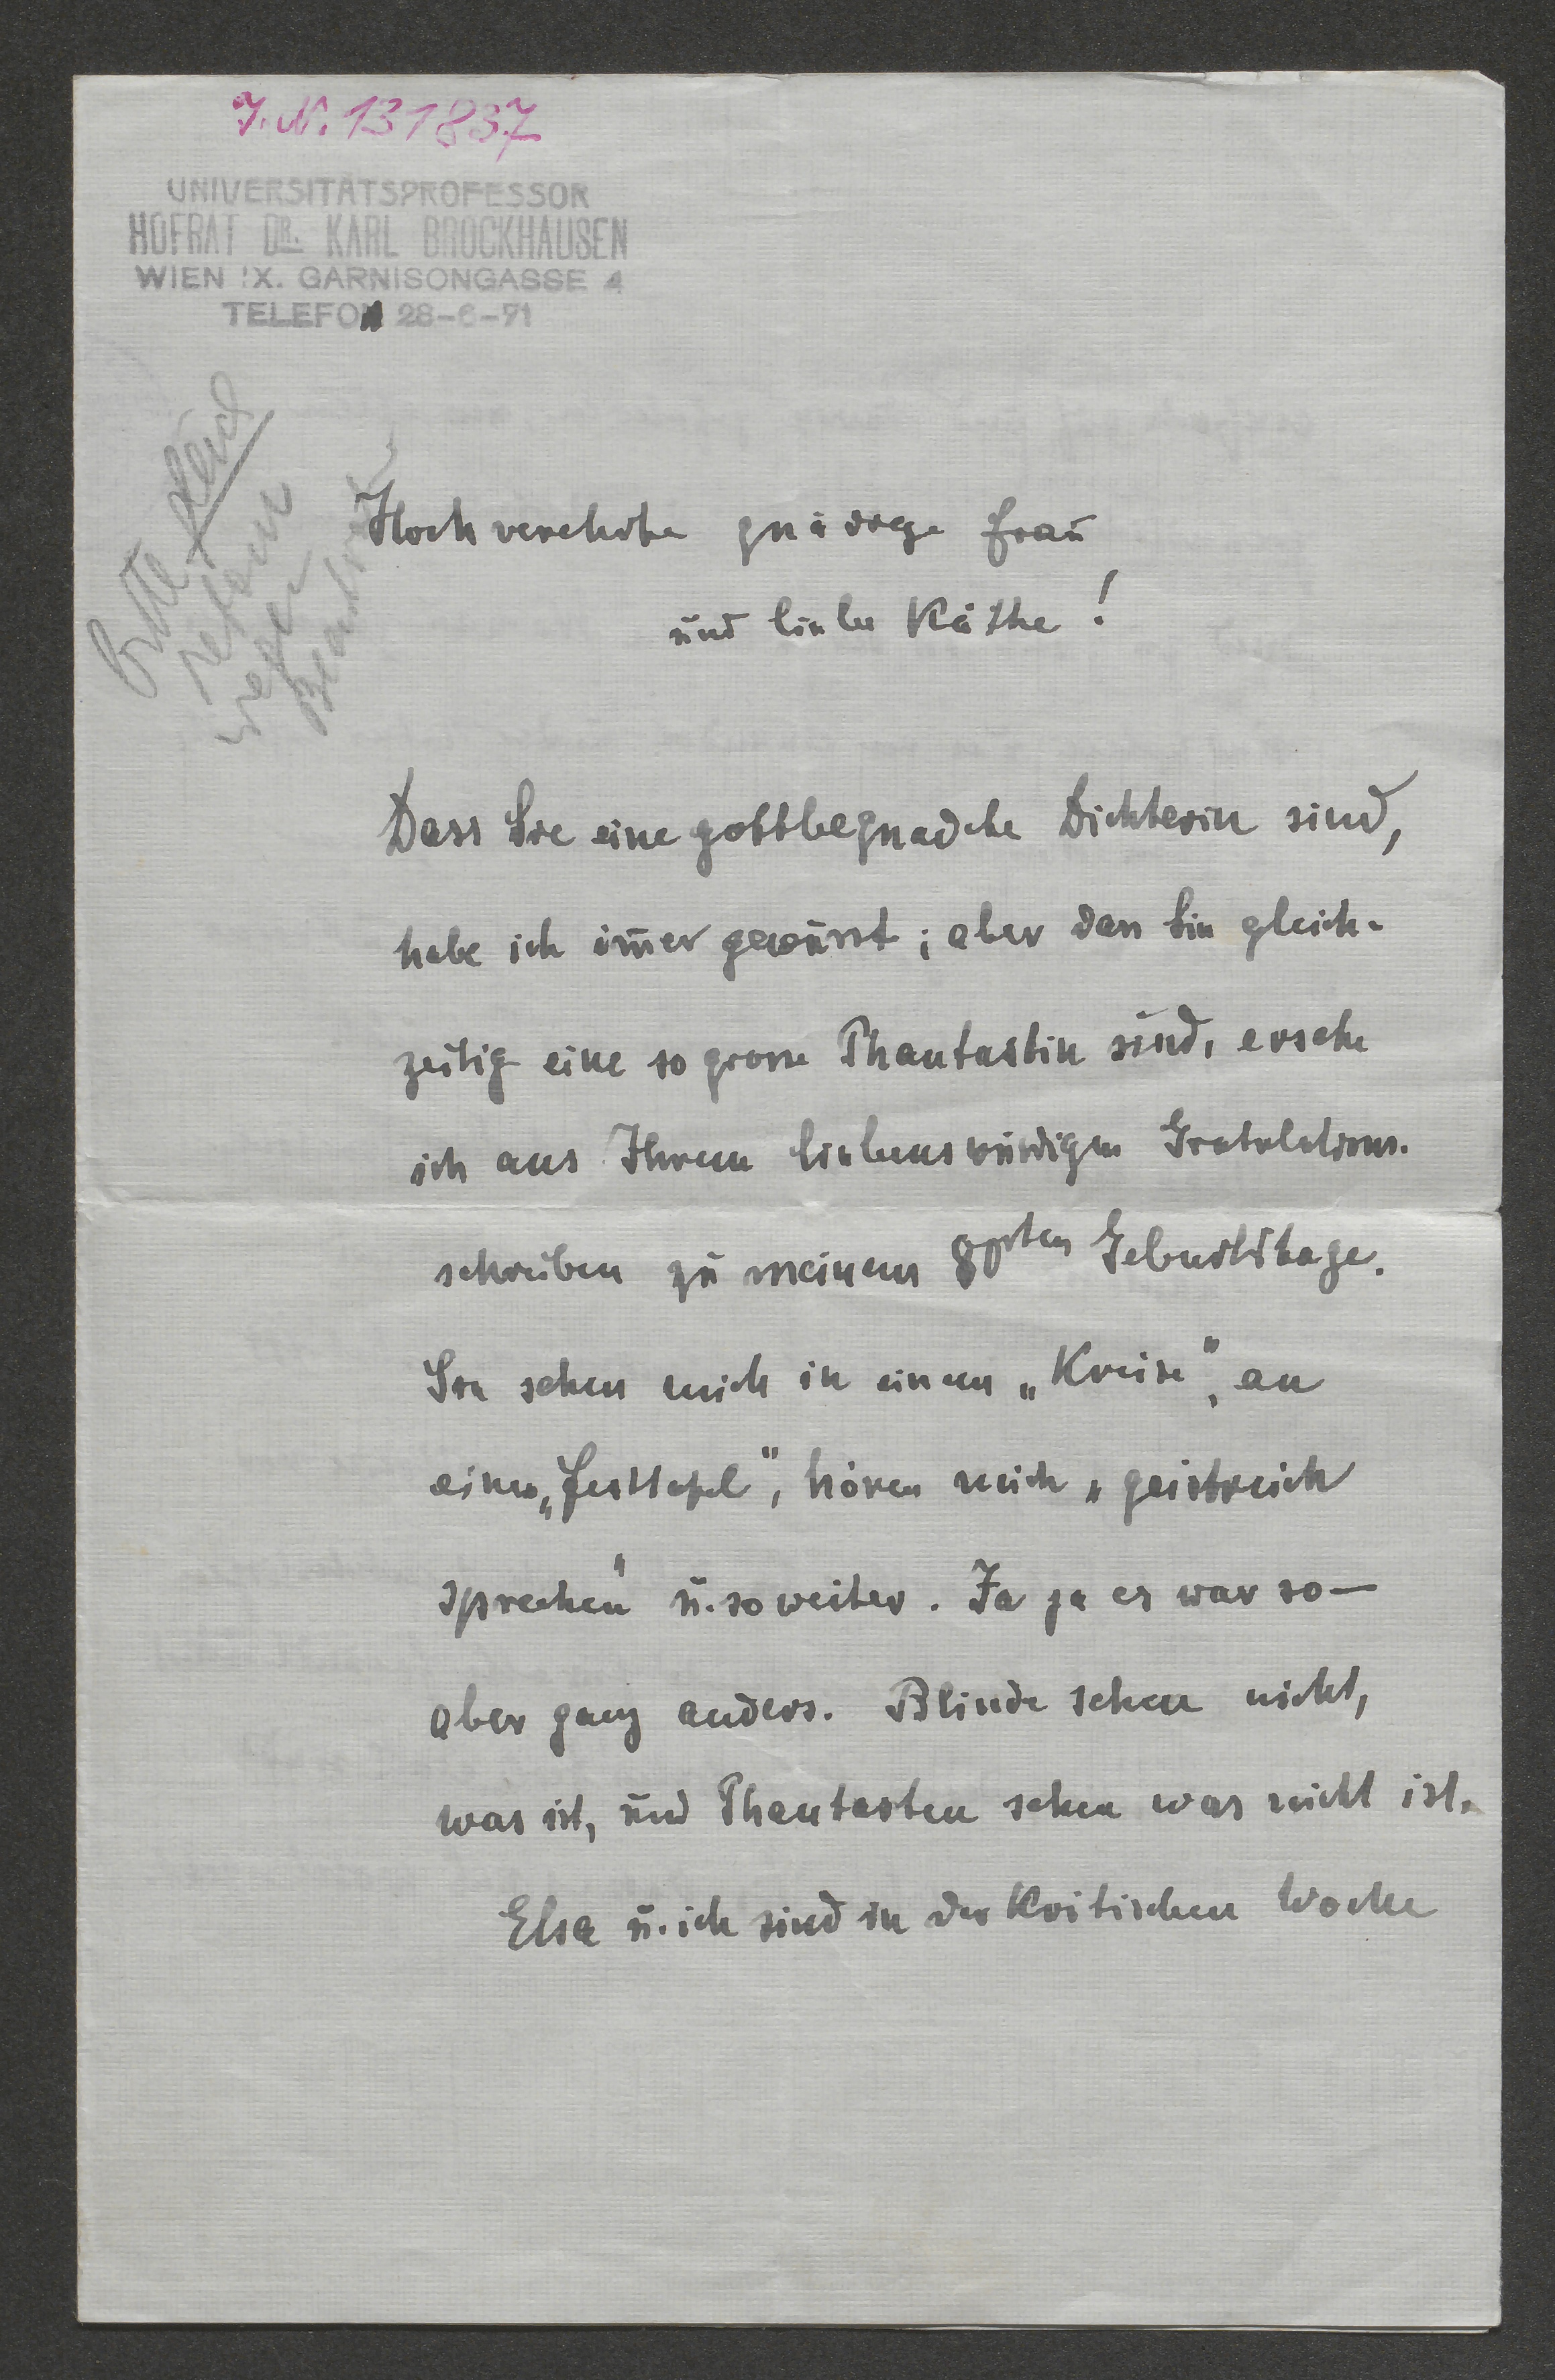 J. N. 131837
UNIVERSITÄTSPROFESSOR
HOFRAT DR. KARL BROCKHAUSEN
WIEN IX. GARNISONGASSE 4
TELEFON 28-6-71
Bitte
retour
wegen
Beantwort
Hochverehrte gnädige Frau
und liebe Käthe!
Dass Sie eine gottbegnadete Dichterin sind,
habe ich im̅er gewusst; aber dass Sie gleich-
zeitig eine so grosse Phantastin sind, ersehe
ich aus Ihrem liebenswürdigen Gratulations-
schreiben zu meinem 80sten Geburtstage.
Sie sehen mich in einem „Kreise", an
einer „Festtafel", hören mich „geistreich
sprechen" u. so weiter. Ja ja es war so—
aber ganz anders. Blinde sehen nicht,
was ist, und Phantasten sehen was nicht ist.
Elsa u. ich sind in der kritischen Woche